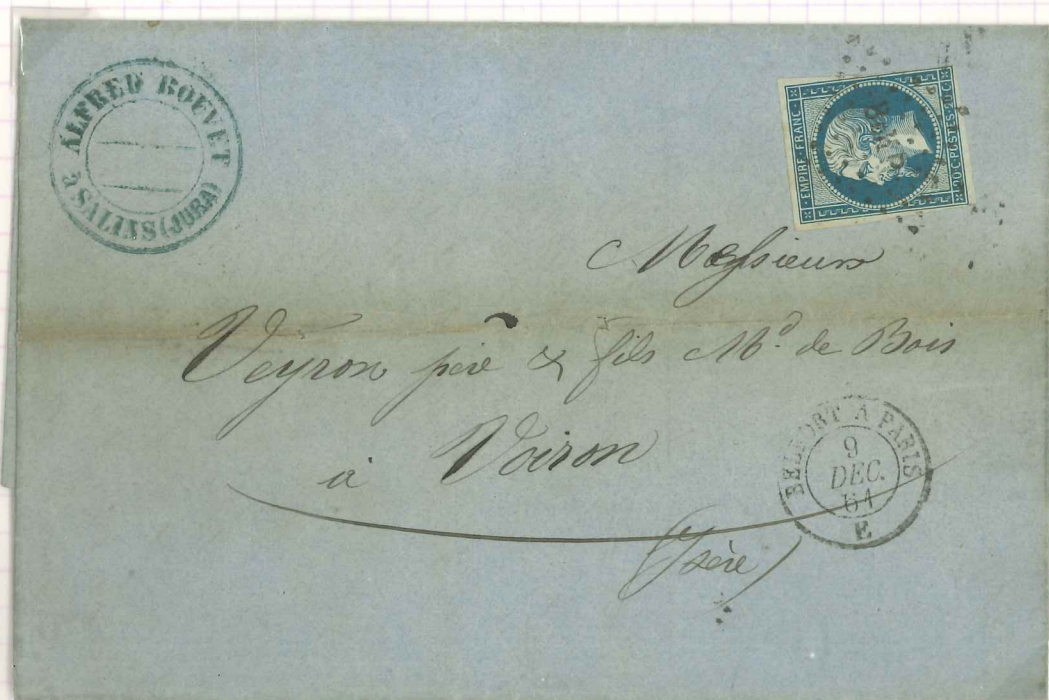 ALFRED BOUVET
à SALINS (JURA)
EMPIRE · FRANC ·
20 C · POSTES · 20 C
Messieurs
Veyron père & fils Md. de Bois
à Voiron
(Isère)
BELFORT A PARIS
9
DEC.
61
E